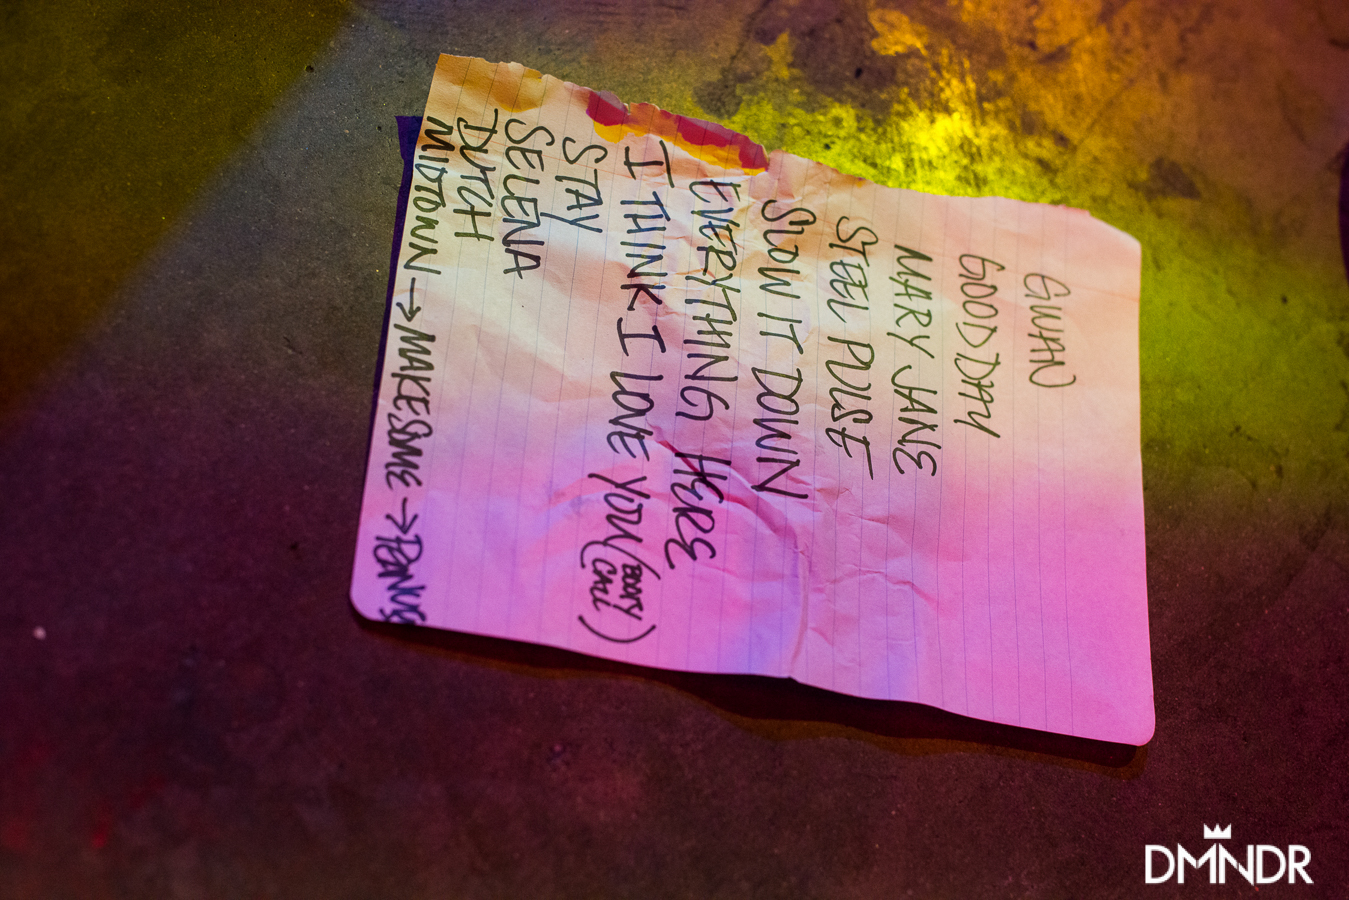 GWAN
GOOD DAY
MARY JANE
STEEL PULSE
SLOW IT DOWN
EVERYTHING HERE
I THINK I LOVE YOU (BOOTY CALL)
STAY
SELENA
DUTCH
MIDTOWN → MAKE SOME →
DMNDR